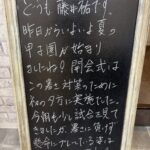 どうも藤井祐です。
昨日からいよいよ夏の
甲子園が始まり
ましたね？開会式は
この暑さ対策のために
初の夕方に実施でした。
今朝も少し試合を見て
きましたが、暑さに負けず
懸命にプレーしている姿は